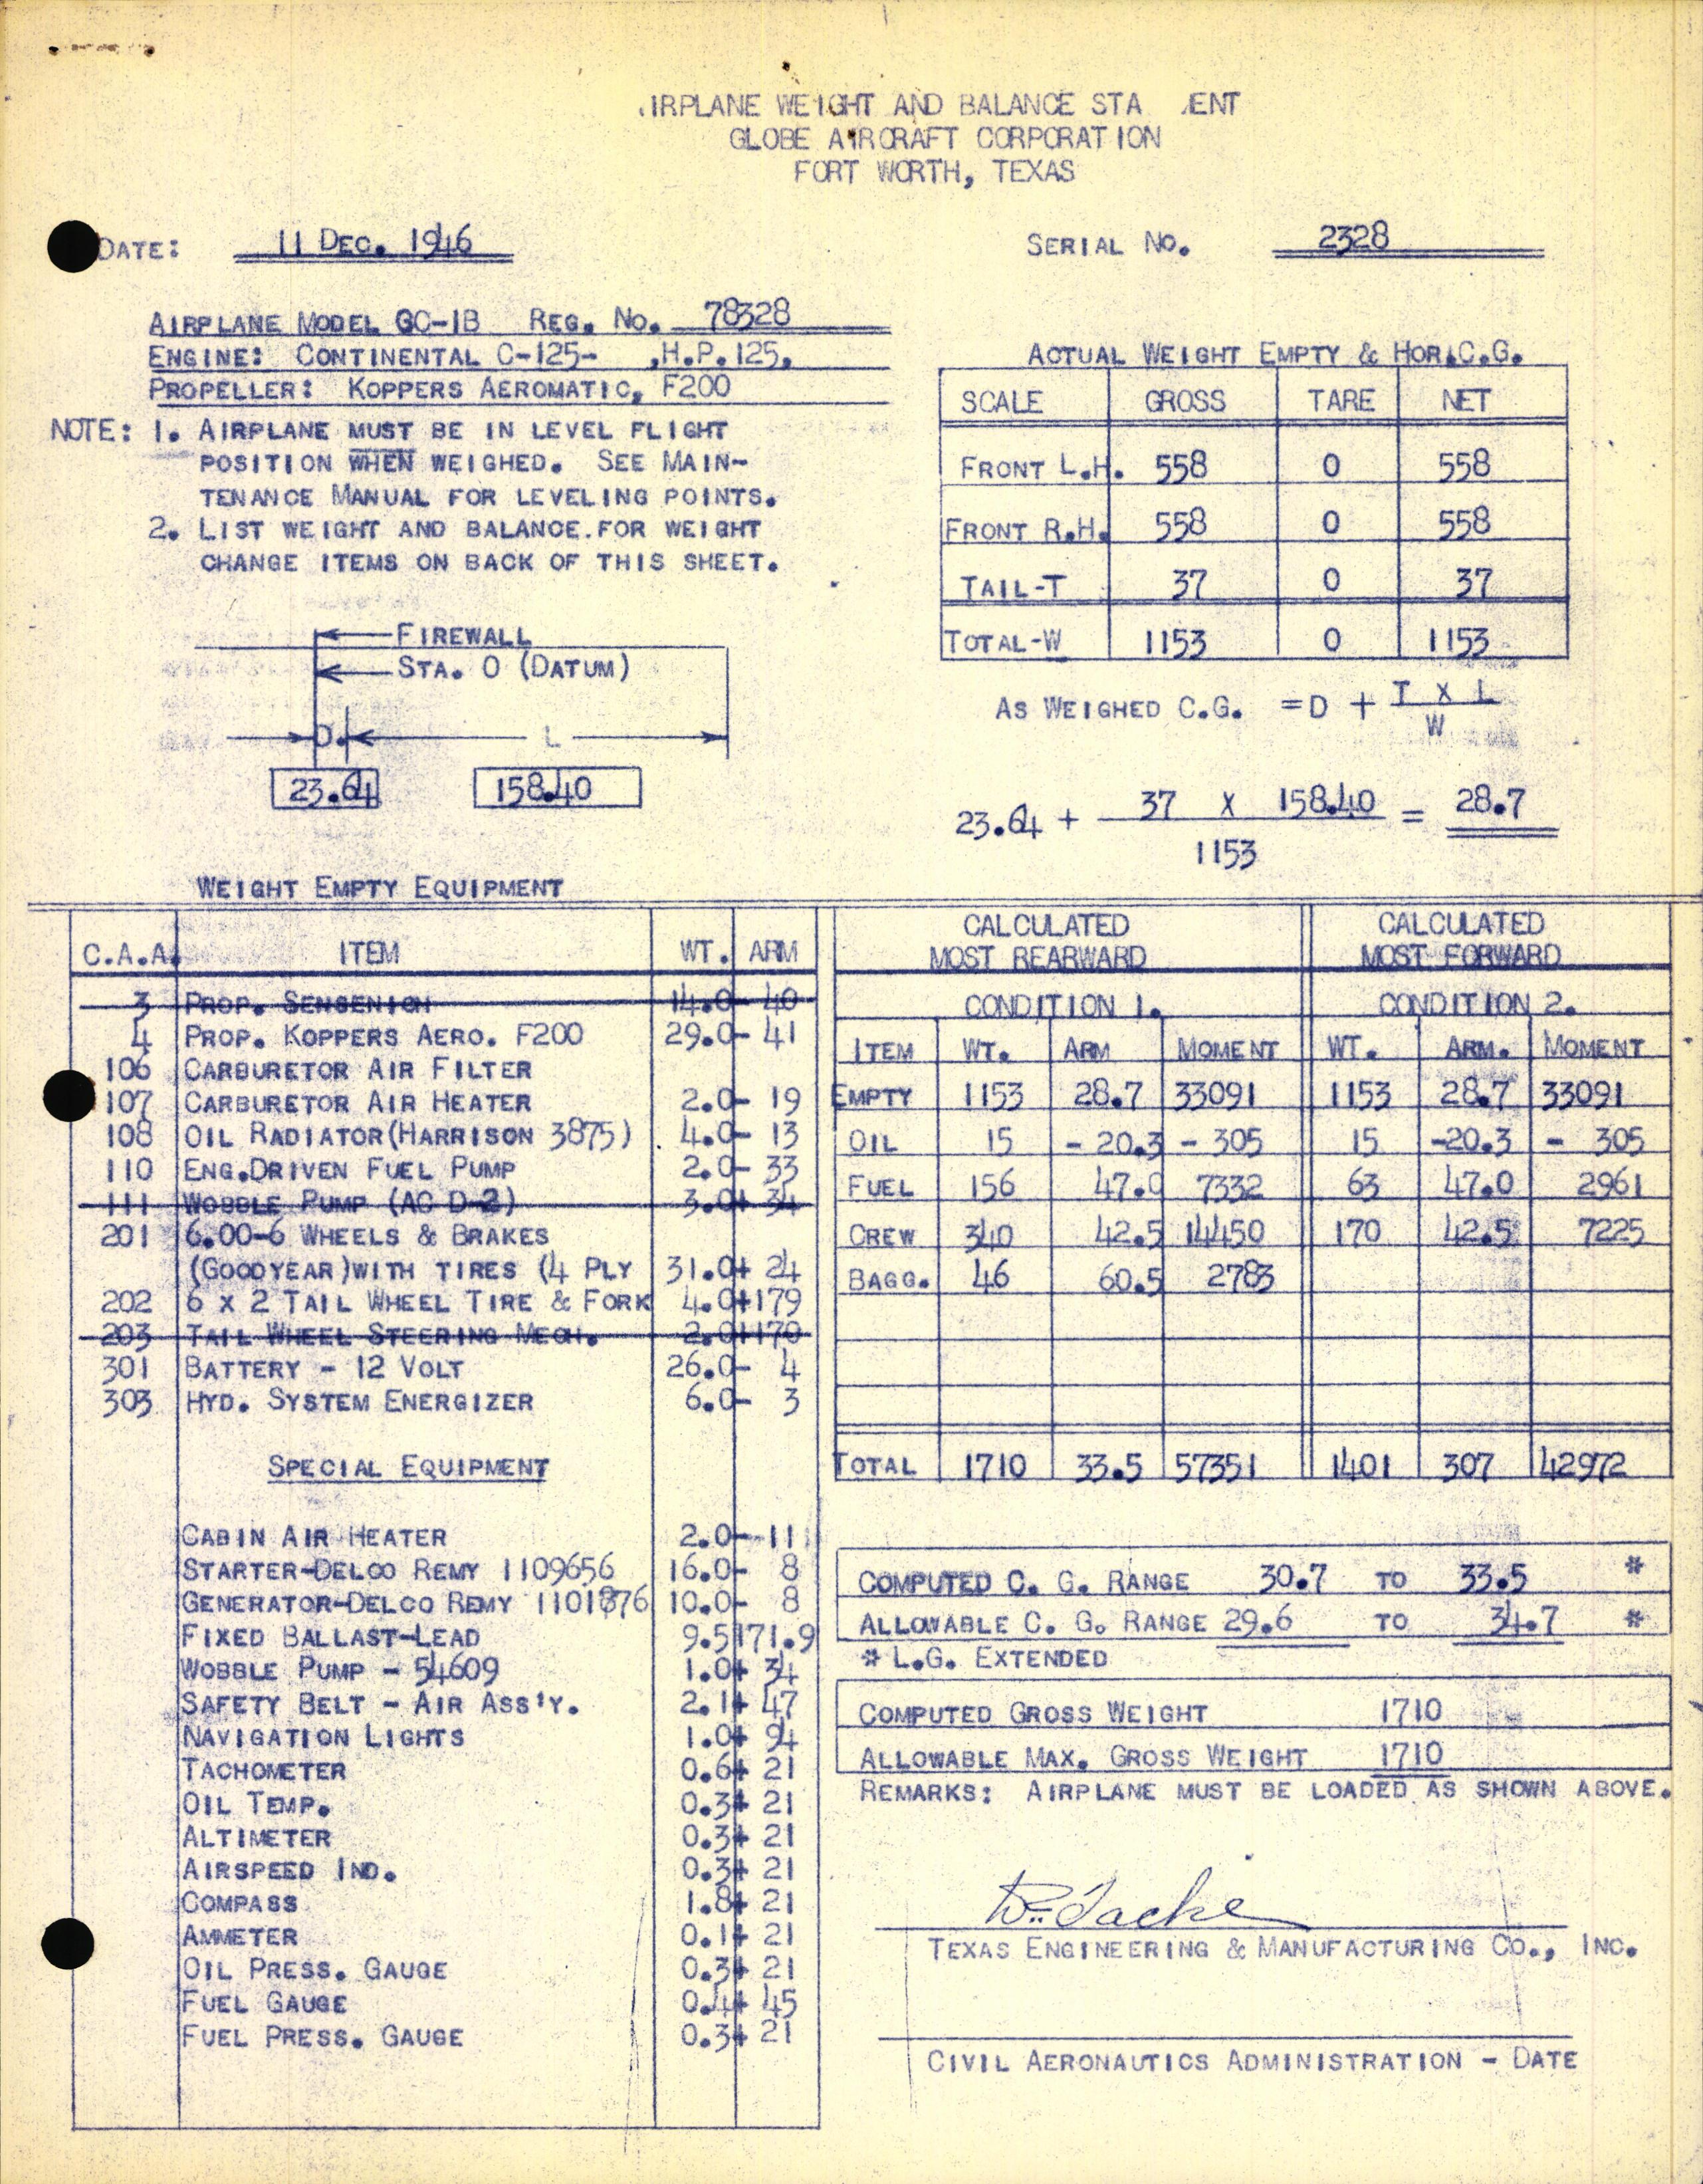 .IRPLANE WEIGHT AND BALANCE STA EMENT
GLOBE AIRCRAFT CORPORATION
FORT WORTH, TEXAS
DATE: 11 DEC. 1946
SERIAL NO. 2328
AIRPLANE MODEL GC-1B REG. NO. 78328
ENGINE: CONTINENTAL C-125- ,H.P. 125,
PROPELLER: KOPPERS AEROMATIC, F200
NOTE: 1. AIRPLANE MUST BE IN LEVEL FLIGHT
POSITION WHEN WEIGHED. SEE MAIN-
TENANCE MANUAL FOR LEVELING POINTS.
2. LIST WEIGHT AND BALANCE FOR WEIGHT
CHANGE ITEMS ON BACK OF THIS SHEET.
ACTUAL WEIGHT EMPTY & HOR.C.G.
SCALE GROSS TARE NET
FRONT L.H. 558 0 558
FRONT R.H. 558 0 558
TAIL-T 37 0 37
TOTAL-W 1153 0 1153
FIREWALL
STA. 0 (DATUM)
D. L
23.64 158.40
AS WEIGHED C.G. = D + T X L
W
23.64 + 37 X 158.40 = 28.7
1153
WEIGHT EMPTY EQUIPMENT
C.A.A. ITEM WT. ARM
3 PROP. SENSENICH 14.0- 40
4 PROP. KOPPERS AERO. F200 29.0- 41
106 CARBURETOR AIR FILTER
107 CARBURETOR AIR HEATER 2.0- 19
108 OIL RADIATOR(HARRISON 3875) 4.0- 13
110 ENG.DRIVEN FUEL PUMP 2.0- 33
111 WOBBLE PUMP (AC D-2) 3.0+ 34
201 6.00-6 WHEELS & BRAKES
(GOODYEAR)WITH TIRES (4 PLY 31.0+ 24
202 6 X 2 TAIL WHEEL TIRE & FORK 4.0+179
203 TAIL WHEEL STEERING MECH. 2.0+170
301 BATTERY - 12 VOLT 26.0- 4
303 HYD. SYSTEM ENERGIZER 6.0- 3
SPECIAL EQUIPMENT
CABIN AIR HEATER 2.0- 11
STARTER-DELCO REMY 1109656 16.0- 8
GENERATOR-DELCO REMY 1101876 10.0- 8
FIXED BALLAST-LEAD 9.5 171.9
WOBBLE PUMP - 54609 1.0+ 34
SAFETY BELT - AIR ASS'Y. 2.1+ 47
NAVIGATION LIGHTS 1.0+ 94
TACHOMETER 0.6+ 21
OIL TEMP. 0.3+ 21
ALTIMETER 0.3+ 21
AIRSPEED IND. 0.3+ 21
COMPASS 1.8+ 21
AMMETER 0.1+ 21
OIL PRESS. GAUGE 0.3+ 21
FUEL GAUGE 0.4+ 45
FUEL PRESS. GAUGE 0.3+ 21
CALCULATED CALCULATED
MOST REARWARD MOST FORWARD
CONDITION 1. CONDITION 2.
ITEM WT. ARM MOMENT WT. ARM. MOMENT
EMPTY 1153 28.7 33091 1153 28.7 33091
OIL 15 - 20.3 - 305 15 -20.3 - 305
FUEL 156 47.0 7332 63 47.0 2961
CREW 340 42.5 14450 170 42.5 7225
BAGG. 46 60.5 2783
TOTAL 1710 33.5 57351 1401 307 42972
COMPUTED C. G. RANGE 30.7 TO 33.5 *
ALLOWABLE C. G. RANGE 29.6 TO 34.7 *
* L.G. EXTENDED
COMPUTED GROSS WEIGHT 1710
ALLOWABLE MAX. GROSS WEIGHT 1710
REMARKS: AIRPLANE MUST BE LOADED AS SHOWN ABOVE.
TEXAS ENGINEERING & MANUFACTURING CO., INC.
CIVIL AERONAUTICS ADMINISTRATION - DATE